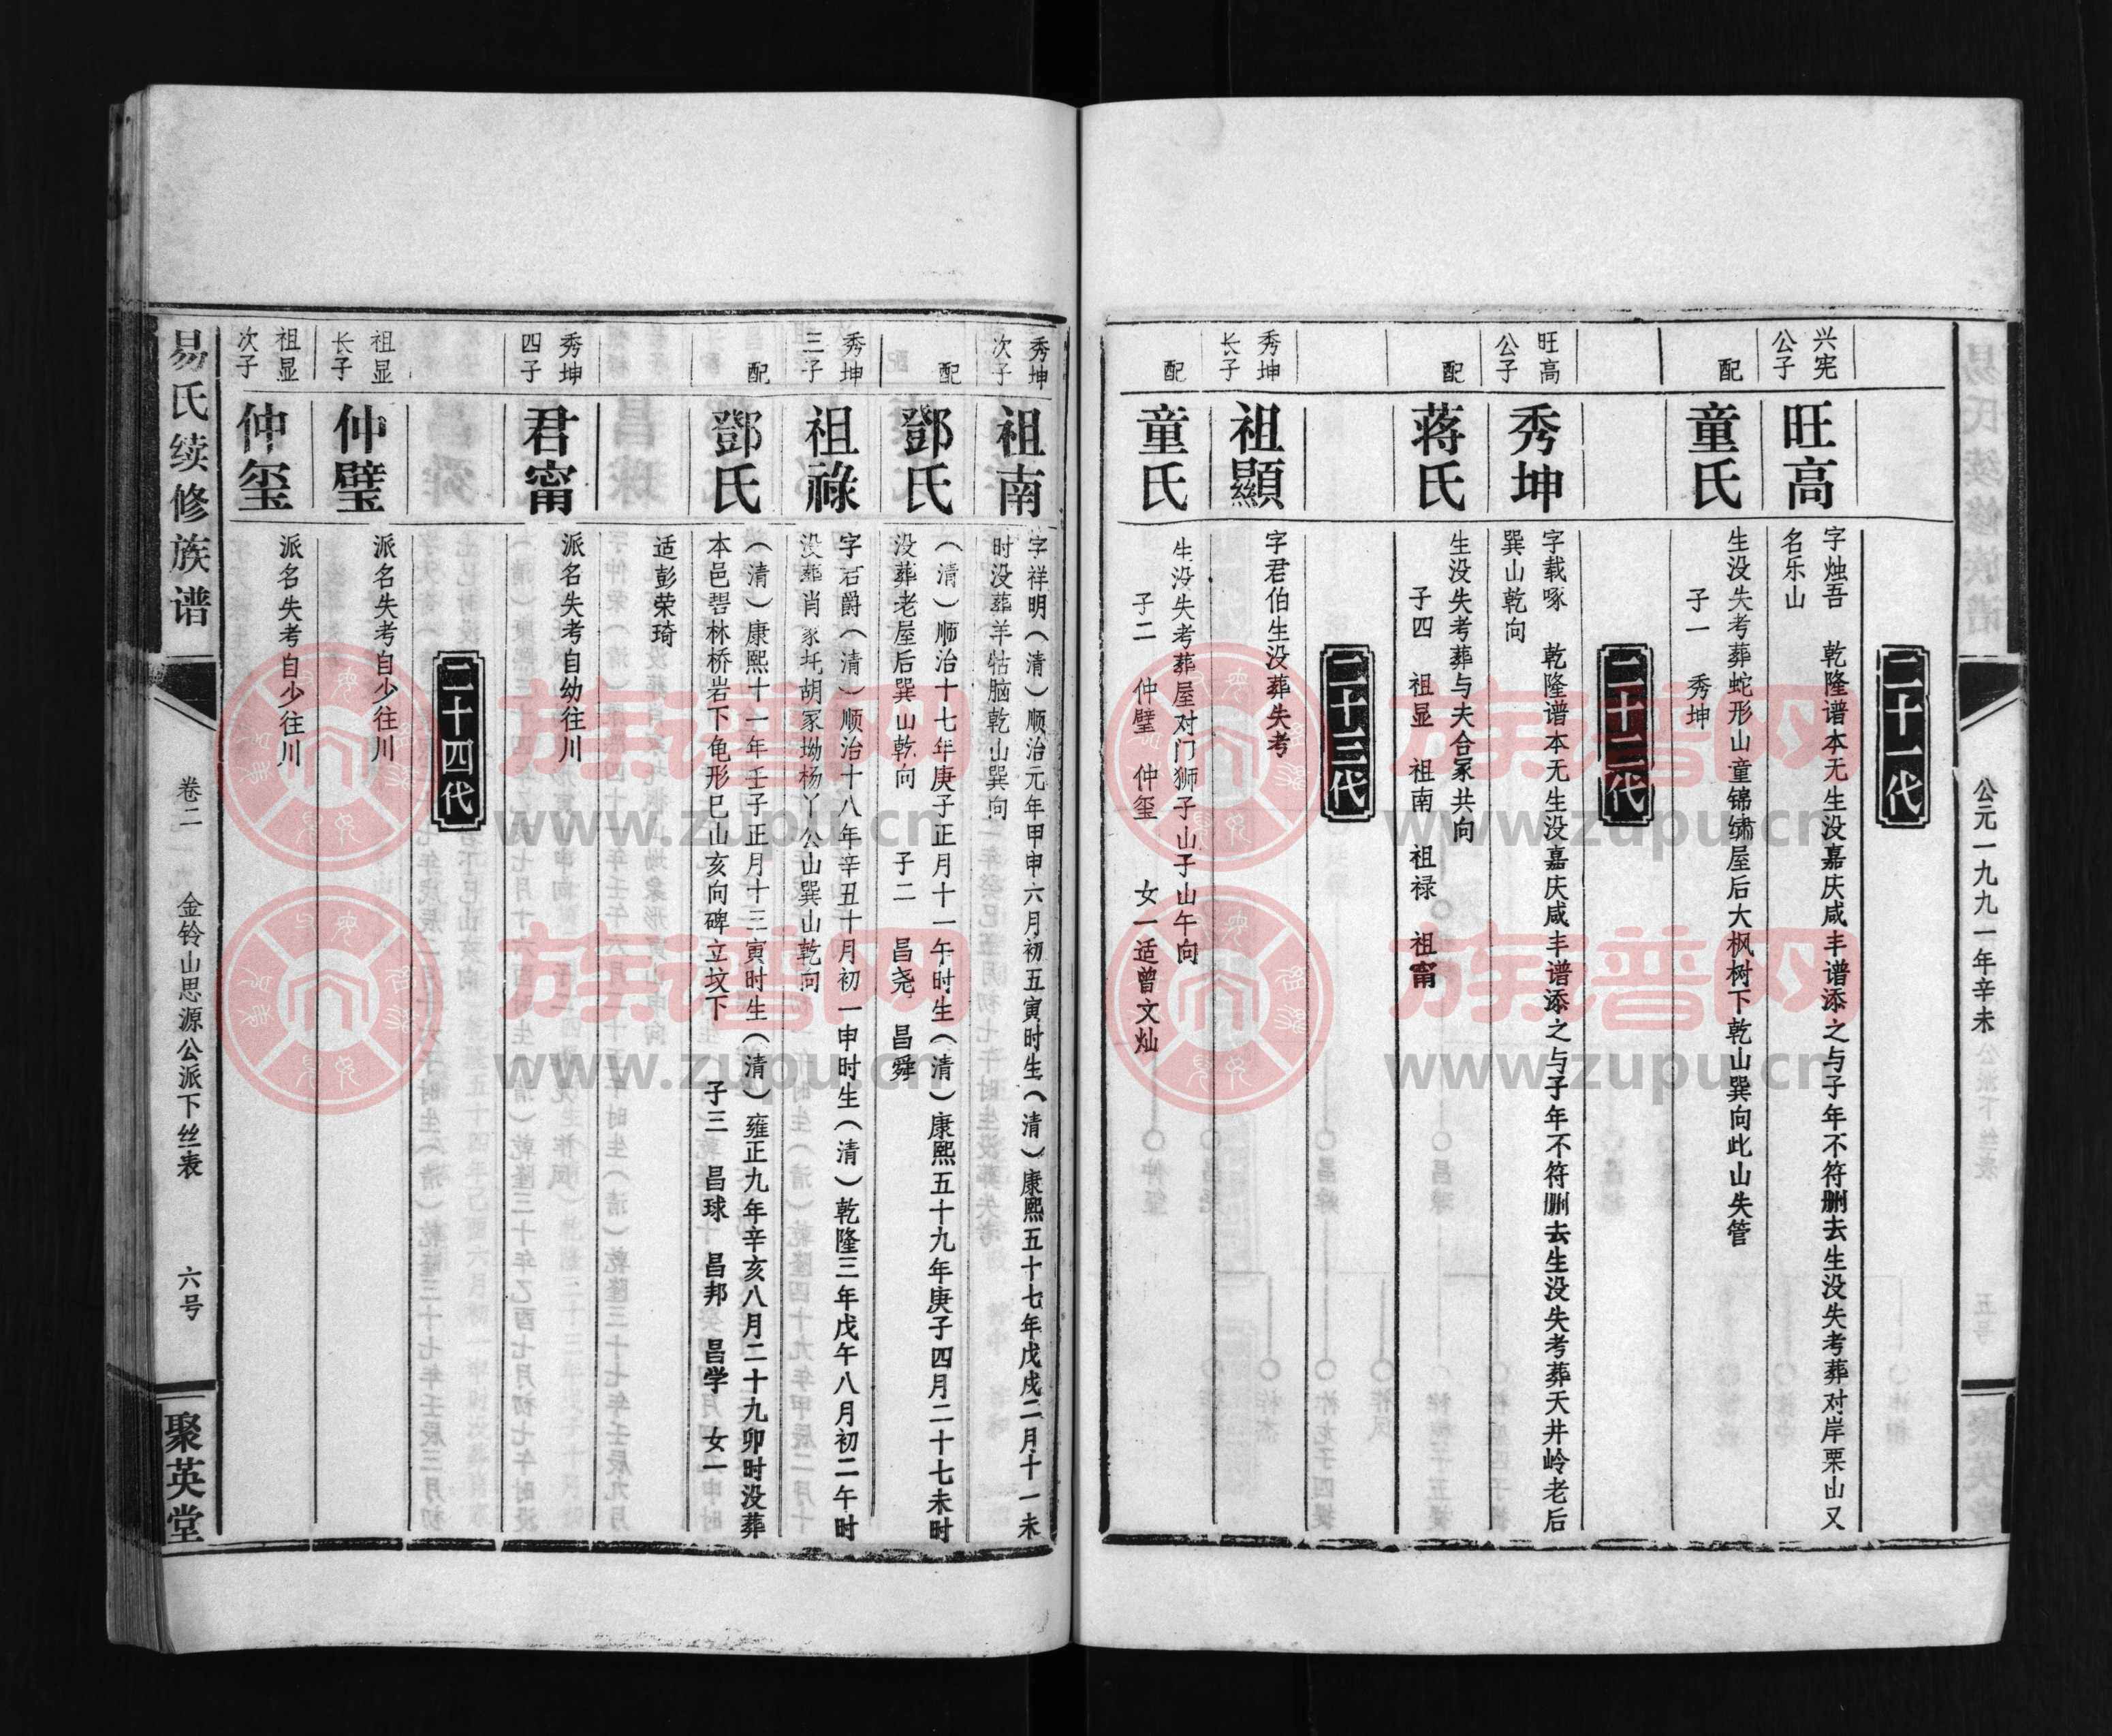 公元一九九一年辛未
二十一代
兴宪公子
旺高
字烛吾 乾隆谱本无生没嘉庆咸丰谱添之与子年不符删去生没失考葬对岸栗山又
名乐山
配
童氏
生没失考葬蛇形山童锦绣屋后大枫树下乾山巽向此山失管
子一 秀坤
二十二代
旺高公子
秀坤
字载啄 乾隆谱本无生没嘉庆咸丰谱添之与子年不符删去生没失考葬天井岭老后
巽山乾向
配
蒋氏
生没失考葬与夫合冢共向
子四 祖显 祖南 祖禄 祖甯
二十三代
秀坤长子
祖顯
字君伯生没葬失考
配
童氏
生没失考葬屋对门狮子山子山午向
子二 仲璧 仲玺 女一适曾文灿
秀坤次子
祖南
字祥明（清）顺治元年甲申六月初五寅时生（清）康熙五十七年戊戌二月十一未
时没葬羊牯脑乾山巽向
配
鄧氏
（清）顺治十七年庚子正月十一午时生（清）康熙五十九年庚子四月二十七未时
没葬老屋后巽山乾向 子二 昌尧 昌舜
秀坤三子
祖祿
字石爵（清）顺治十八年辛丑十月初一申时生（清）乾隆三年戊午八月初二午时
没葬肖家圫胡家坳杨丫公山巽山乾向
配
鄧氏
（清）康熙十一年壬子正月十三寅时生（清）雍正九年辛亥八月二十九卯时没葬
本邑碧林桥岩下龟形巳山亥向碑立坟下 子三 昌球 昌邦 昌学 女一
适彭荣琦
秀坤四子
君甯
派名失考自幼往川
二十四代
祖显长子
仲璧
派名失考自少往川
祖显次子
仲玺
派名失考自少往川
易氏续修族谱
卷二
金铃山思源公派下丝表
六号
聚英堂
族谱网
www.zupu.cn
族谱网
www.zupu.cn
族谱网
www.zupu.cn
族谱网
www.zupu.cn